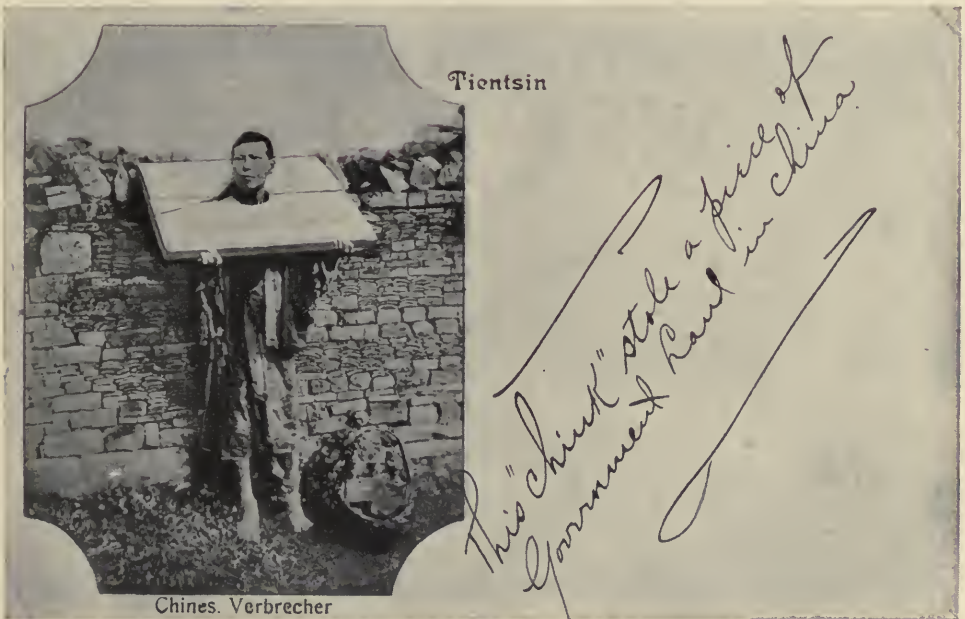 Tientsin
Chines. Verbrecher
This "chink" stole a piece of
Government Land in China